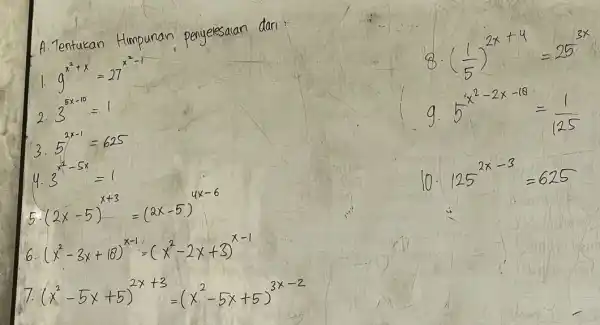 A. Tentukan Himpunan penyelesaian dari :
1. 9^{x²+x} = 27^{x²-1}
2. 3^{5x-10} = 1
3. 5^{2x-1} = 625
4. 3^{x²-5x} = 1
5. (2x-5)^{x+3} = (2x-5)^{4x-6}
6. (x²-3x+18)^{x-1} = (x²-2x+3)^{x-1}
7. (x²-5x+5)^{2x+3} = (x²-5x+5)^{3x-2}
8. (1/5)^{2x+4} = 25^{3x}
9. 5^{x²-2x-18} = 1/125
10. 125^{2x-3} = 625